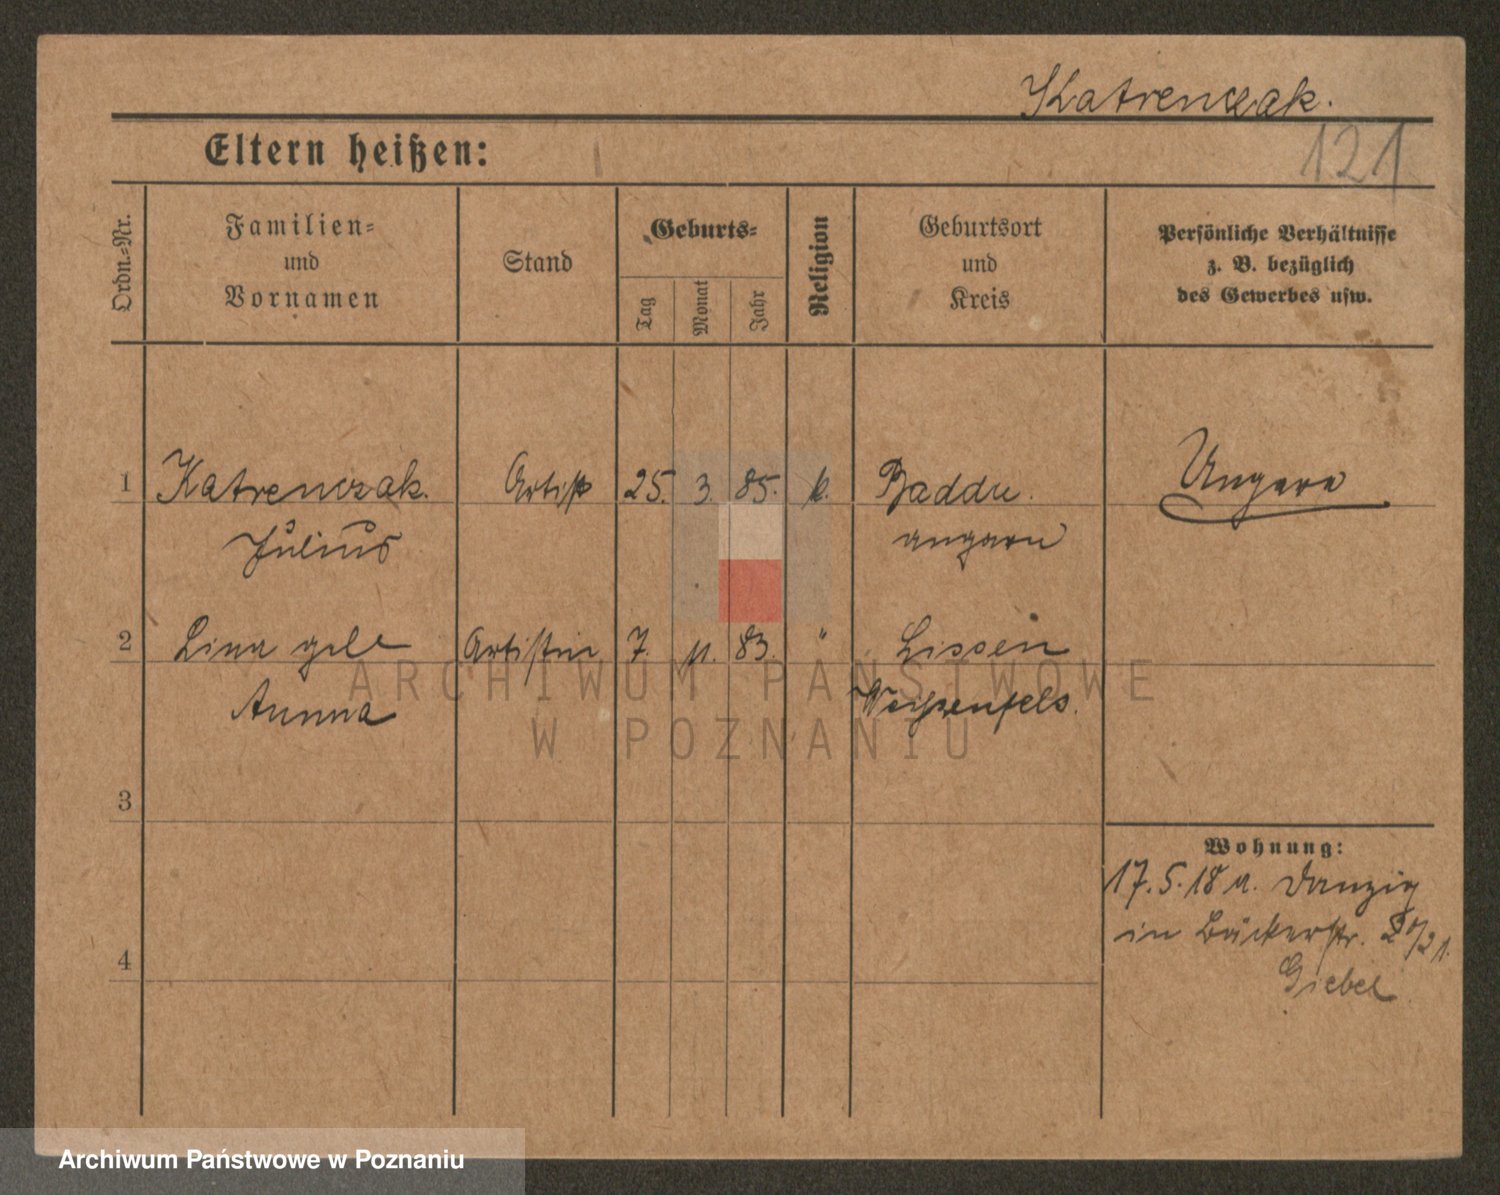 Katrenczak.
121
Eltern heißen:
Ordn.-Nr.
Familien-
und
Vornamen
Stand
Geburts-
Tag
Monat
Jahr
Religion
Geburtsort
und
Kreis
Persönliche Verhältnisse
z. B. bezüglich
des Gewerbes usw.
1 Katrenczak. Artist 25. 3. 85. k. Baddu. Ungarn
Julius ungarn
2 Lina geb Artistin 7. 11. 83. " Lissen
Anna Weißenfels.
3
4
Wohnung:
17.5.18 a. Danzig
in Bäckerstr. 20/21.
Giebel
ARCHIWUM PAŃSTWOWE
W POZNANIU
Archiwum Państwowe w Poznaniu